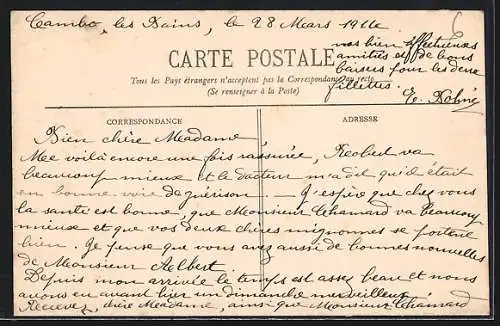 Cambo, les Bains, le 28 Mars 1911e
CARTE POSTALE
Tous les Pays étrangers n'acceptent pas la Correspondance au recto
(Se renseigner à la Poste)
nos bien affectueuses
amitiés et de bons
baisers pour les deux
fillettes.
CORRESPONDANCE
ADRESSE
Bien chère Meadame
Mee voilà encore une fois rassurée, Robert va
beaucoup mieux et le docteur m'a dit qu'il était
en bonne voie de guérison. J'espère que chez vous
la santé est bonne, que Monsieur Chamard va beaucoup
mieux et que vos deux chères mignonnes se portent
bien. Je pense que vous avez aussi de bonnes nouvelles
de Monsieur Albert
Depuis mon arrivée le temps est assez beau et nous
avons eu avant hier un dimanche merveilleux
Recevez, chère Meadame, ainsi que Monsieur Chamard